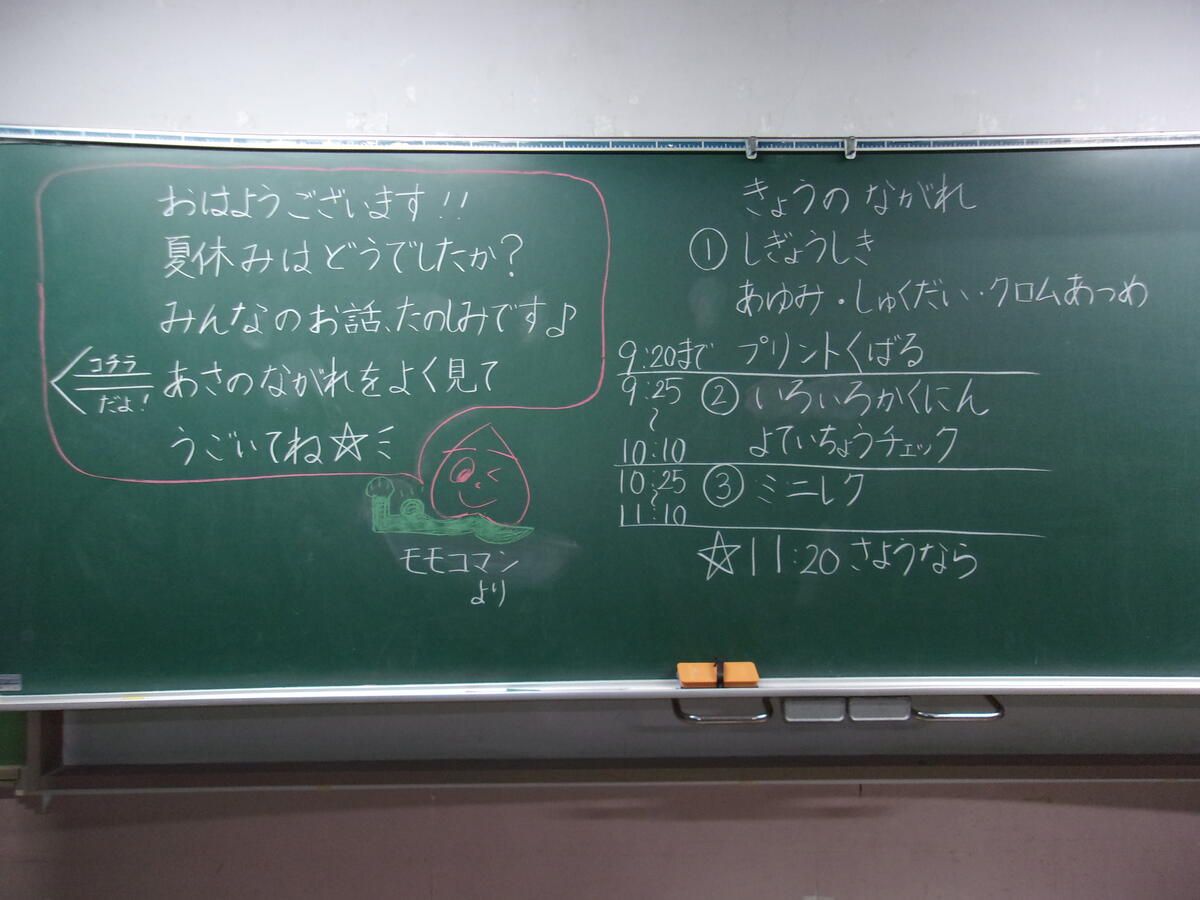 おはようございます!!
夏休みはどうでしたか?
みんなのお話、たのしみです♪
コチラ
だよ!
あさのながれをよく見て
うごいてね☆ミ
モモコマン
より
きょうの ながれ
① しぎょうしき
あゆみ・しゅくだい・クロムあつめ
9:20まで プリントくばる
9:25
〜
10:10
② いろいろかくにん
よていちょうチェック
10:25
〜
11:10
③ ミニレク
☆11:20 さようなら